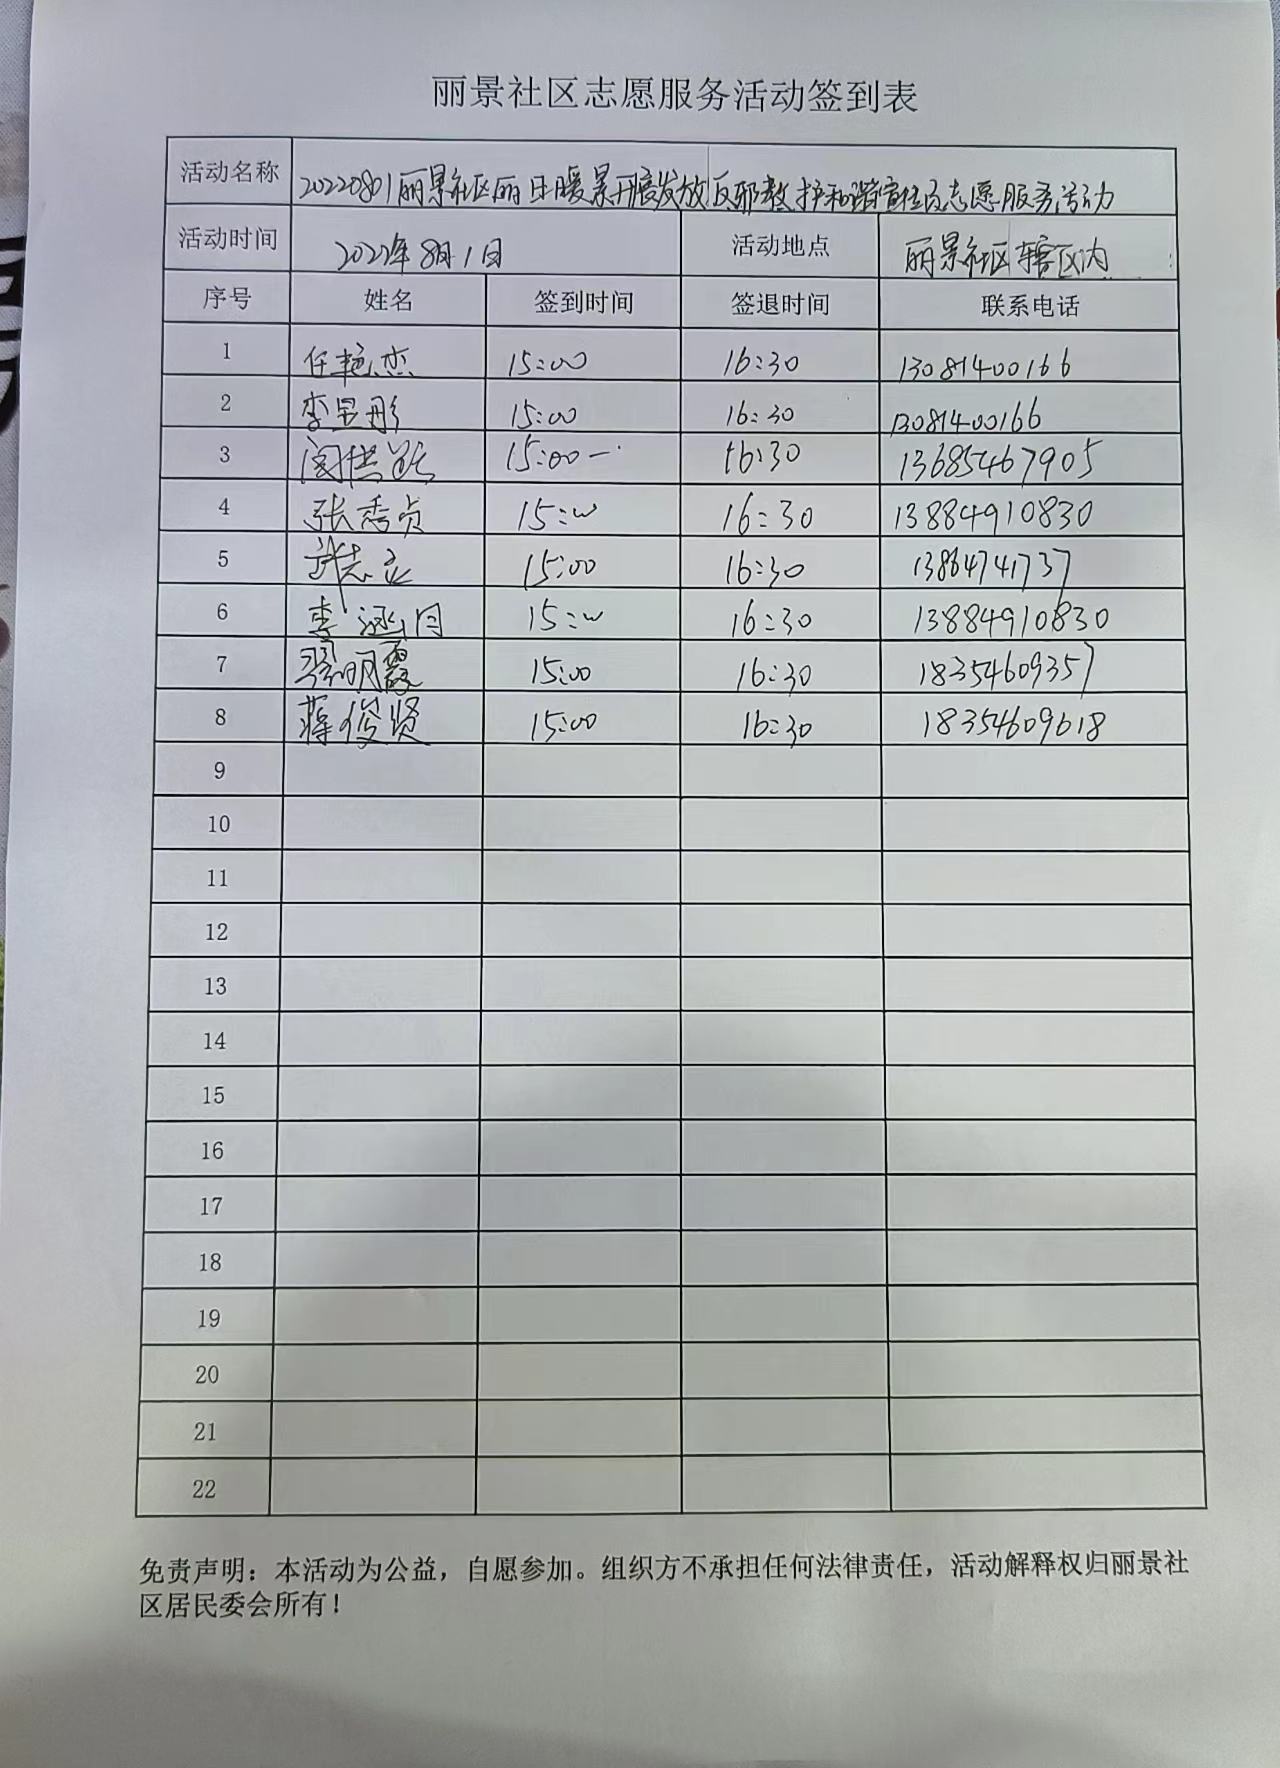 丽景社区志愿服务活动签到表
活动名称 20220801丽景社区丽日暖景开展发放反邪教护和谐宣传页志愿服务活动
活动时间 2022年8月1日 活动地点 丽景社区辖区内
序号 姓名 签到时间 签退时间 联系电话
1 任艳杰 15:00 16:30 13081400166
2 李昱彤 15:00 16:30 13081400166
3 15:00 16:30 13685467905
4 张秀贞 15:00 16:30 13884910830
5 武志立 15:00 16:30 13864741737
6 李涵月 15:00 16:30 13884910830
7 翟明霞 15:00 16:30 18354609357
8 蒋俊贤 15:00 16:30 18354609618
9
10
11
12
13
14
15
16
17
18
19
20
21
22
免责声明：本活动为公益，自愿参加。组织方不承担任何法律责任，活动解释权归丽景社
区居民委会所有！